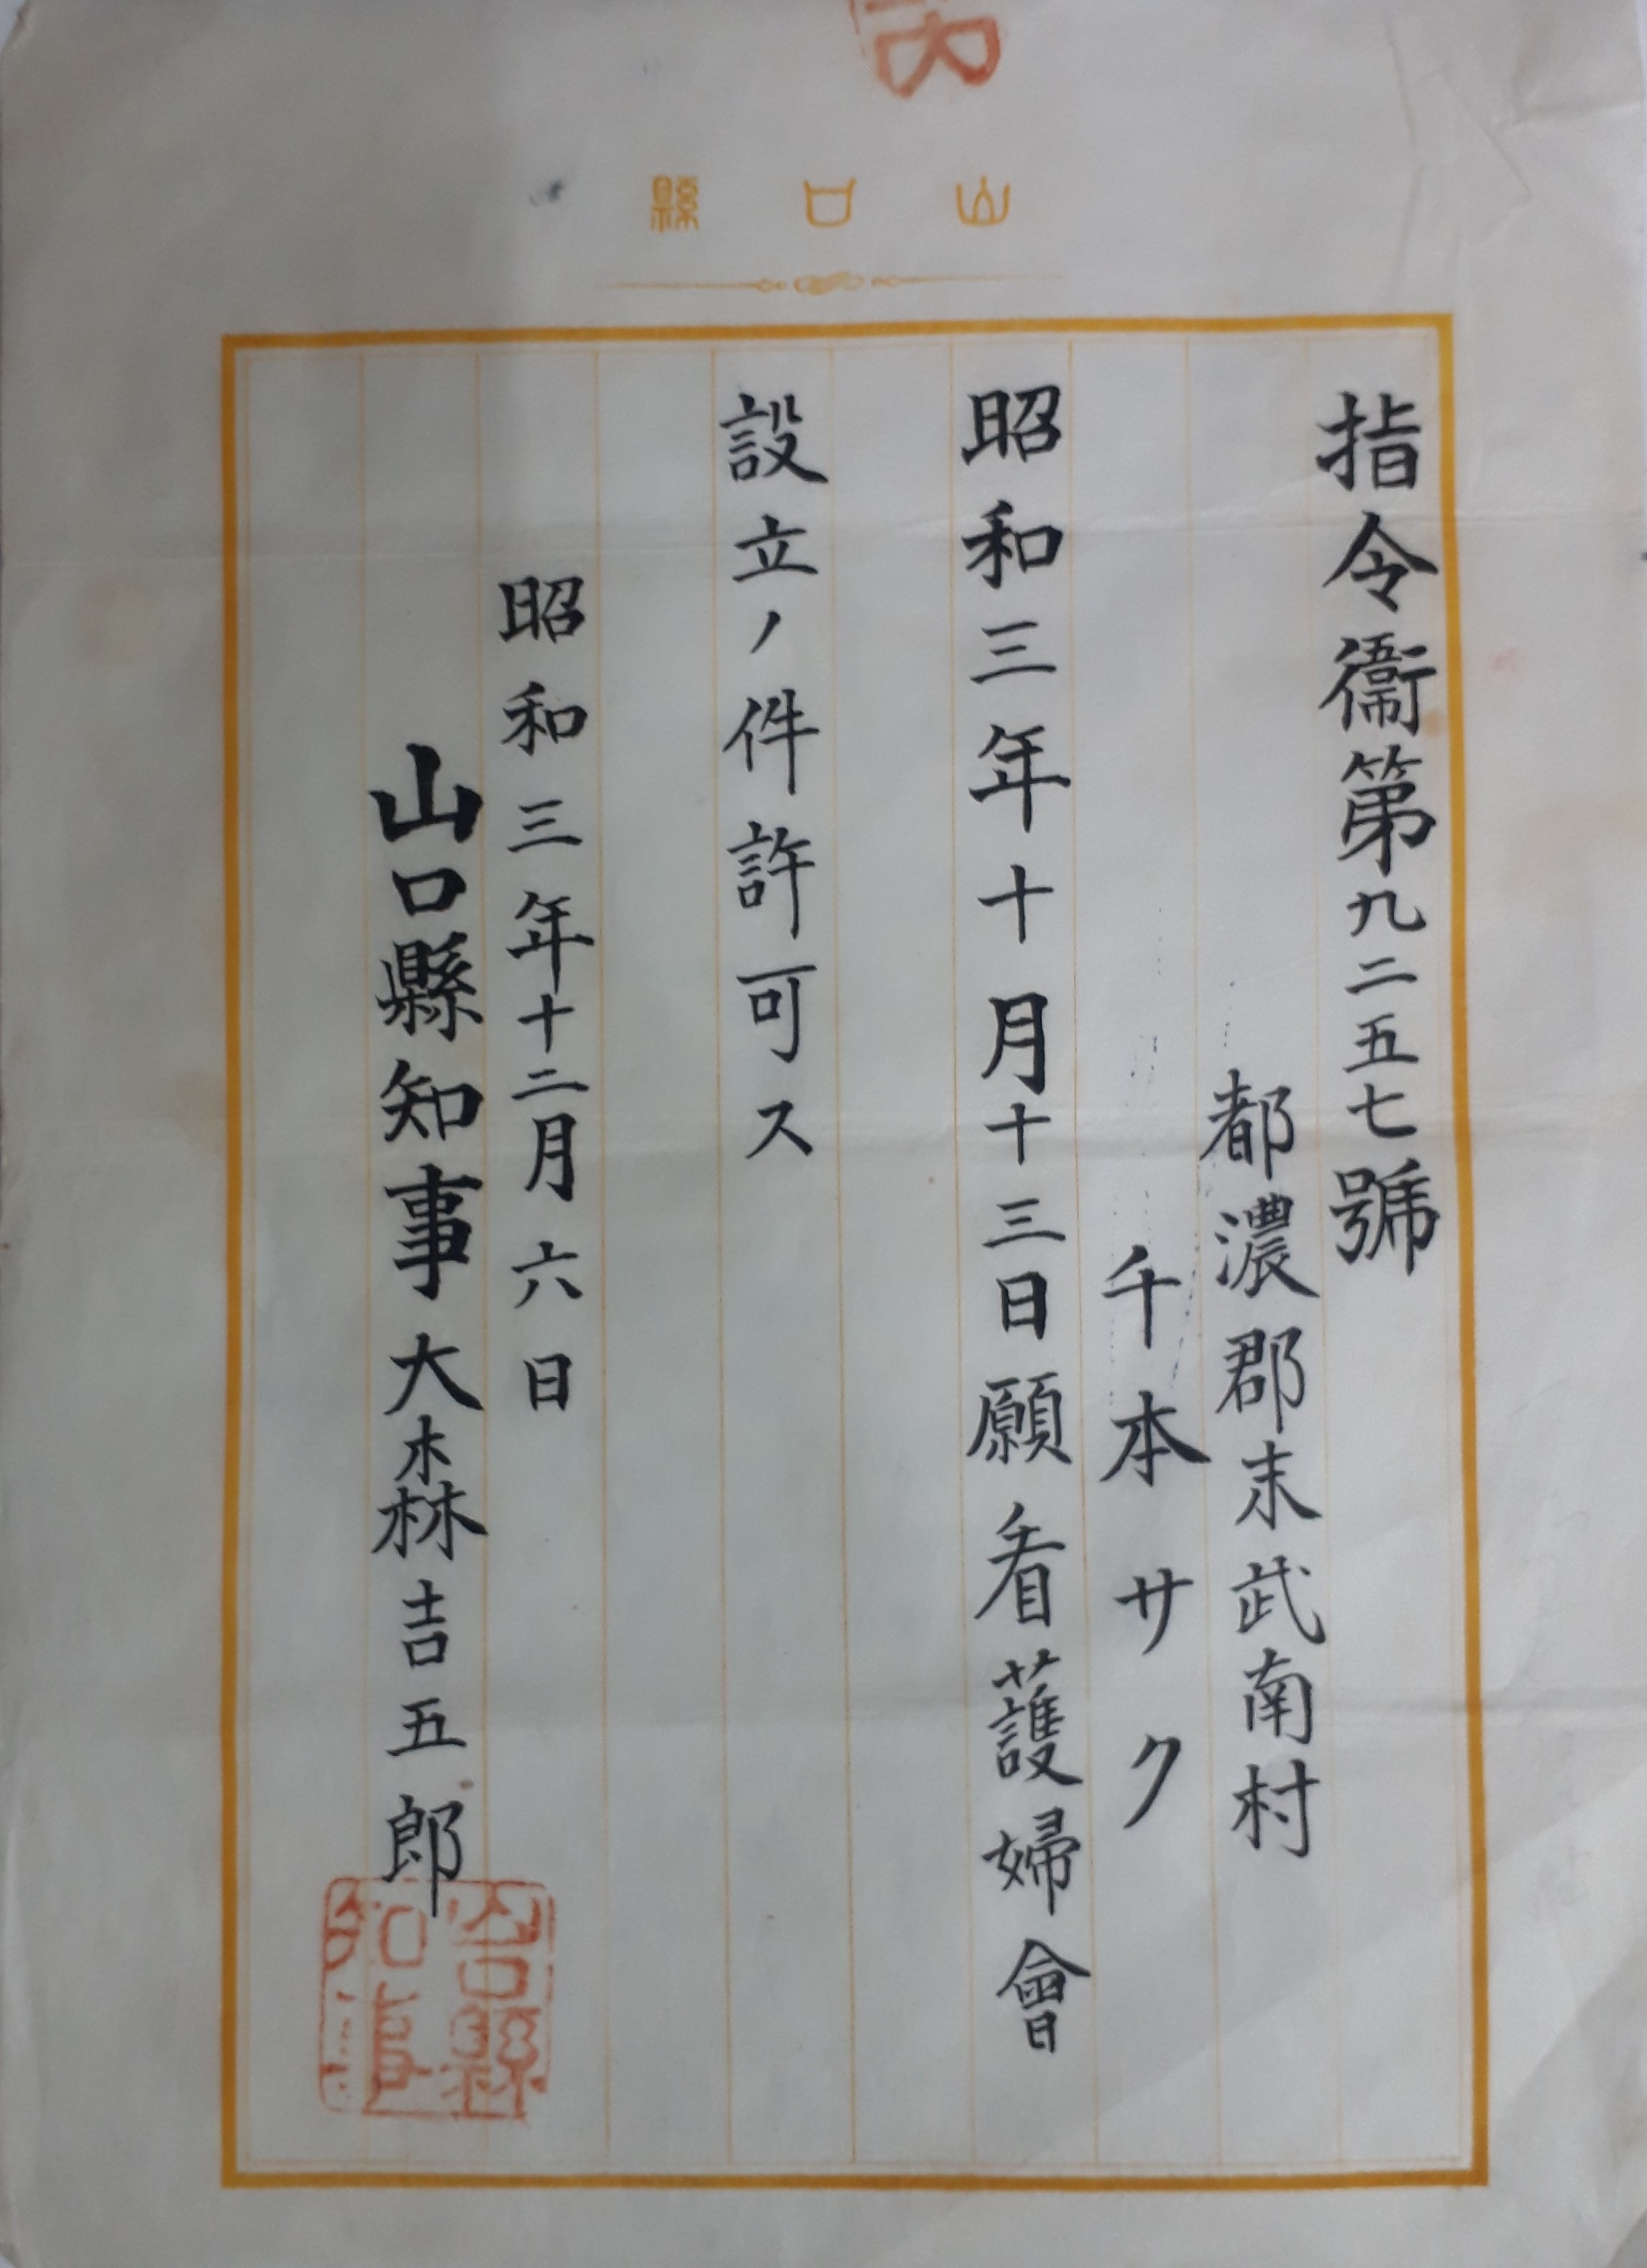 山口縣
指令衞第九二五七號
都濃郡末武南村
千本サク
昭和三年十月十三日願看護婦會
設立ノ件許可ス
昭和三年十二月六日
山口縣知事大森吉五郎